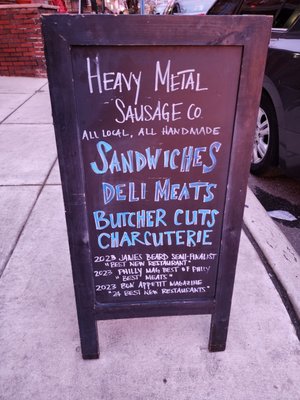 HEAVY METAL
SAUSAGE CO.
ALL LOCAL, ALL HANDMADE
SANDWICHES
DELI MEATS
BUTCHER CUTS
CHARCUTERIE
2023 JAMES BEARD SEMI-FINALIST
"BEST NEW RESTAURANT"
2023 PHILLY MAG BEST OF PHILLY
"BEST MEATS"
2023 BON APPETIT MAGAZINE
"24 BEST NEW RESTAURANTS"